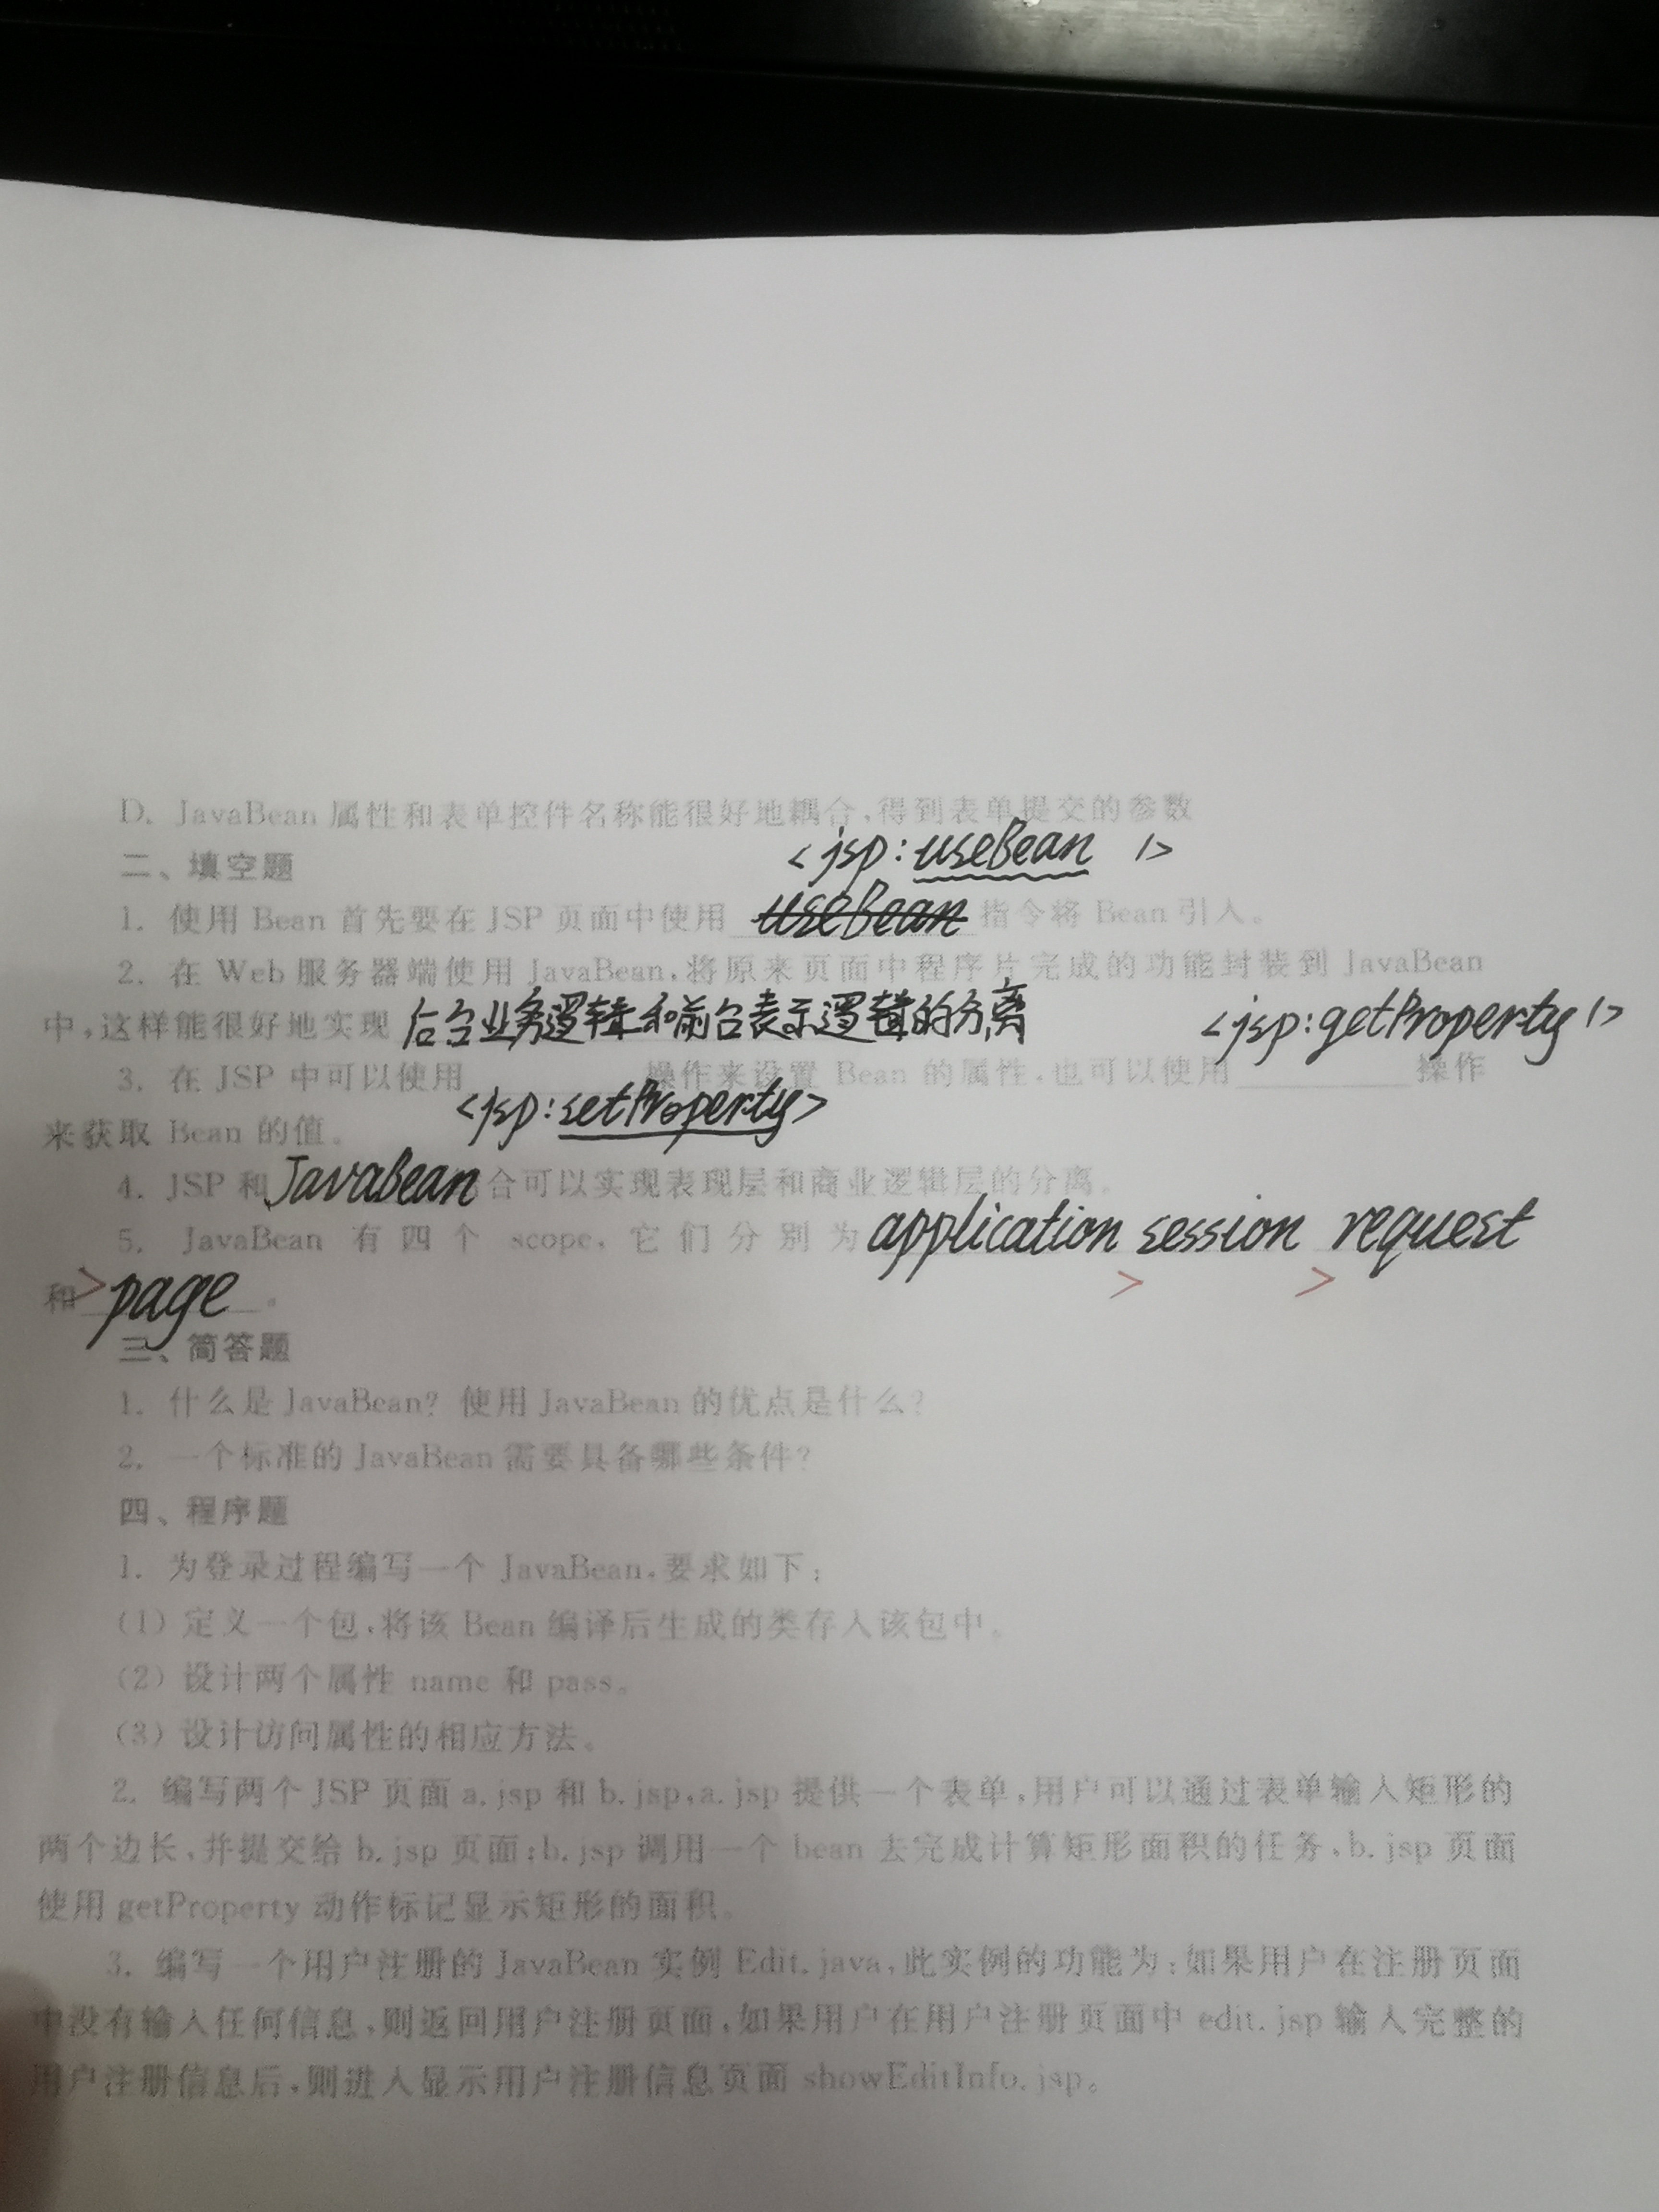 D. JavaBean 属性和表单控件名称能很好地耦合,得到表单提交的参数
<jsp:useBean />
二、填空题
1. 使用 Bean 首先要在 JSP 页面中使用 useBean 指令将 Bean 引入。
2. 在 Web 服务器端使用 JavaBean,将原来页面中程序片完成的功能封装到 JavaBean
中,这样能很好地实现 后台业务逻辑和前台表示逻辑的分离 <jsp:getProperty />
3. 在 JSP 中可以使用 操作来设置 Bean 的属性,也可以使用 操作
<jsp:setProperty>
来获取 Bean 的值。
4. JSP 和 JavaBean 合可以实现表现层和商业逻辑层的分离。
5. JavaBean 有四个 scope,它们分别为 application session request
> >
和> page 。
三、简答题
1. 什么是 JavaBean? 使用 JavaBean 的优点是什么?
2. 一个标准的 JavaBean 需要具备哪些条件?
四、程序题
1. 为登录过程编写一个 JavaBean,要求如下:
(1) 定义一个包,将该 Bean 编译后生成的类存入该包中。
(2) 设计两个属性 name 和 pass。
(3) 设计访问属性的相应方法。
2. 编写两个 JSP 页面 a.jsp 和 b.jsp,a.jsp 提供一个表单,用户可以通过表单输入矩形的
两个边长,并提交给 b.jsp 页面;b.jsp 调用一个 bean 去完成计算矩形面积的任务,b.jsp 页面
使用 getProperty 动作标记显示矩形的面积。
3. 编写一个用户注册的 JavaBean 实例 Edit.java,此实例的功能为:如果用户在注册页面
中没有输入任何信息,则返回用户注册页面,如果用户在用户注册页面中 edit.jsp 输入完整的
用户注册信息后,则进入显示用户注册信息页面 showEditInfo.jsp。